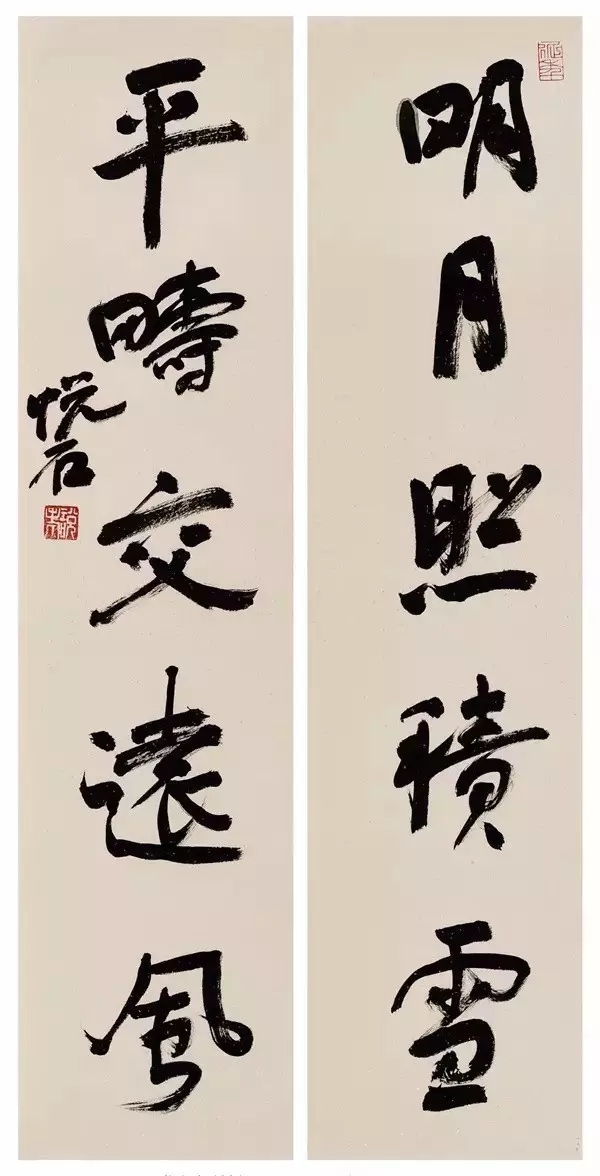 明月照積雪
平疇交遠風
悦石